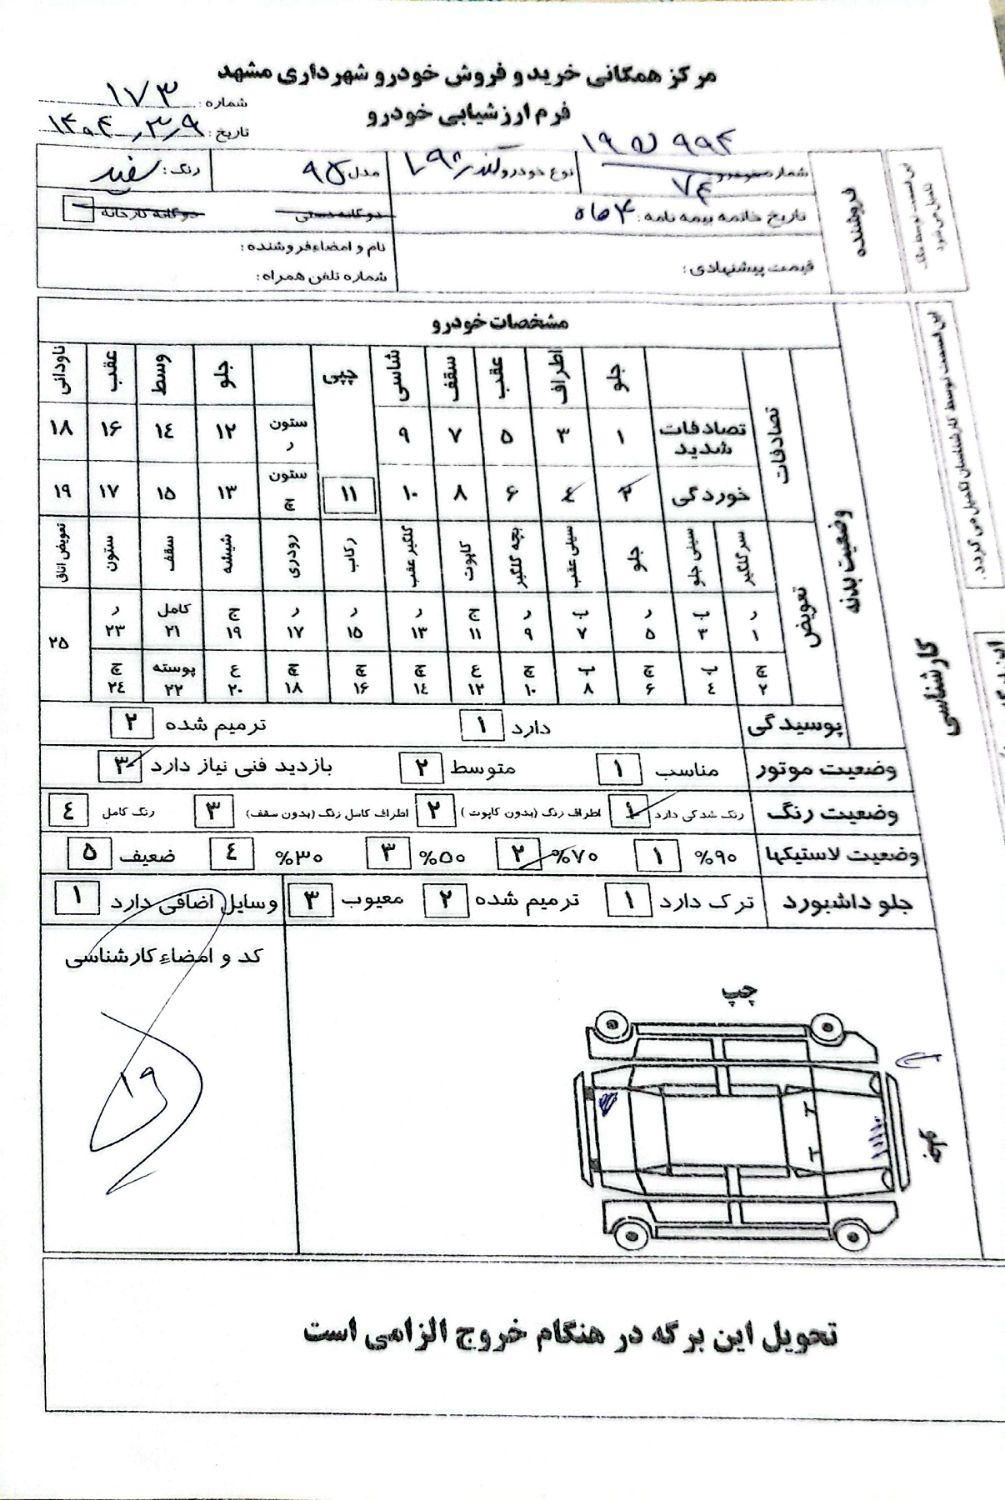 مرکز همگانی خرید و فروش خودرو شهرداری مشهد
فرم ارزشیابی خودرو
شماره: ۱۷۳
تاریخ: ۱۴۰۴,۳,۹
این قسمت توسط مالک تکمیل می شود
فروشنده
شماره خودرو ۱۹ ۹۹۴
۷۴
نوع خودرو
مدل ۹۵
رنگ: سفید
تاریخ خاتمه بیمه نامه: ۴ ماه
دوگانه دستی
دوگانه کارخانه
قیمت پیشنهادی:
نام و امضاء فروشنده:
شماره تلفن همراه:
این قسمت توسط کارشناسان تکمیل می گردد.
کارشناسی
مشخصات خودرو
وضعیت بدنه
تصادفات
جلو اطراف عقب سقف شاسی چپی جلو وسط عقب ناودانی
تصادفات شدید ۱ ۳ ۵ ۷ ۹ ستون ر ۱۲ ۱۴ ۱۶ ۱۸
خوردگی ۲ ۴ ۶ ۸ ۱۰ ۱۱ ستون چ ۱۳ ۱۵ ۱۷ ۱۹
تعویض
سرگلگیر سینی جلو جلو سینی عقب بچه گلگیر کاپوت گلگیر عقب رکاب رودری شیشه سقف ستون تعویض اتاق
ر ۱ ب ۳ ر ۵ ب ۷ ر ۹ ج ۱۱ ر ۱۳ ر ۱۵ ر ۱۷ ج ۱۹ کامل ۲۱ ر ۲۳ ۲۵
چ ۲ ب ۴ چ ۶ ب ۸ چ ۱۰ ع ۱۲ چ ۱۴ چ ۱۶ چ ۱۸ ع ۲۰ پوسته ۲۲ چ ۲۴
پوسیدگی دارد ۱ ترمیم شده ۲
وضعیت موتور مناسب ۱ متوسط ۲ بازدید فنی نیاز دارد ۳
وضعیت رنگ رنگ شدگی دارد ۱ اطراف رنگ (بدون کاپوت) ۲ اطراف کامل رنگ (بدون سقف) ۳ رنگ کامل ۴
وضعیت لاستیکها %۹۰ ۱ %۷۰ ۲ %۵۰ ۳ %۳۰ ۴ ضعیف ۵
جلو داشبورد ترک دارد ۱ ترمیم شده ۲ معیوب ۳ وسایل اضافی دارد ۱
کد و امضاء کارشناسی
۱۹
چپ
تحویل این برگه در هنگام خروج الزامی است